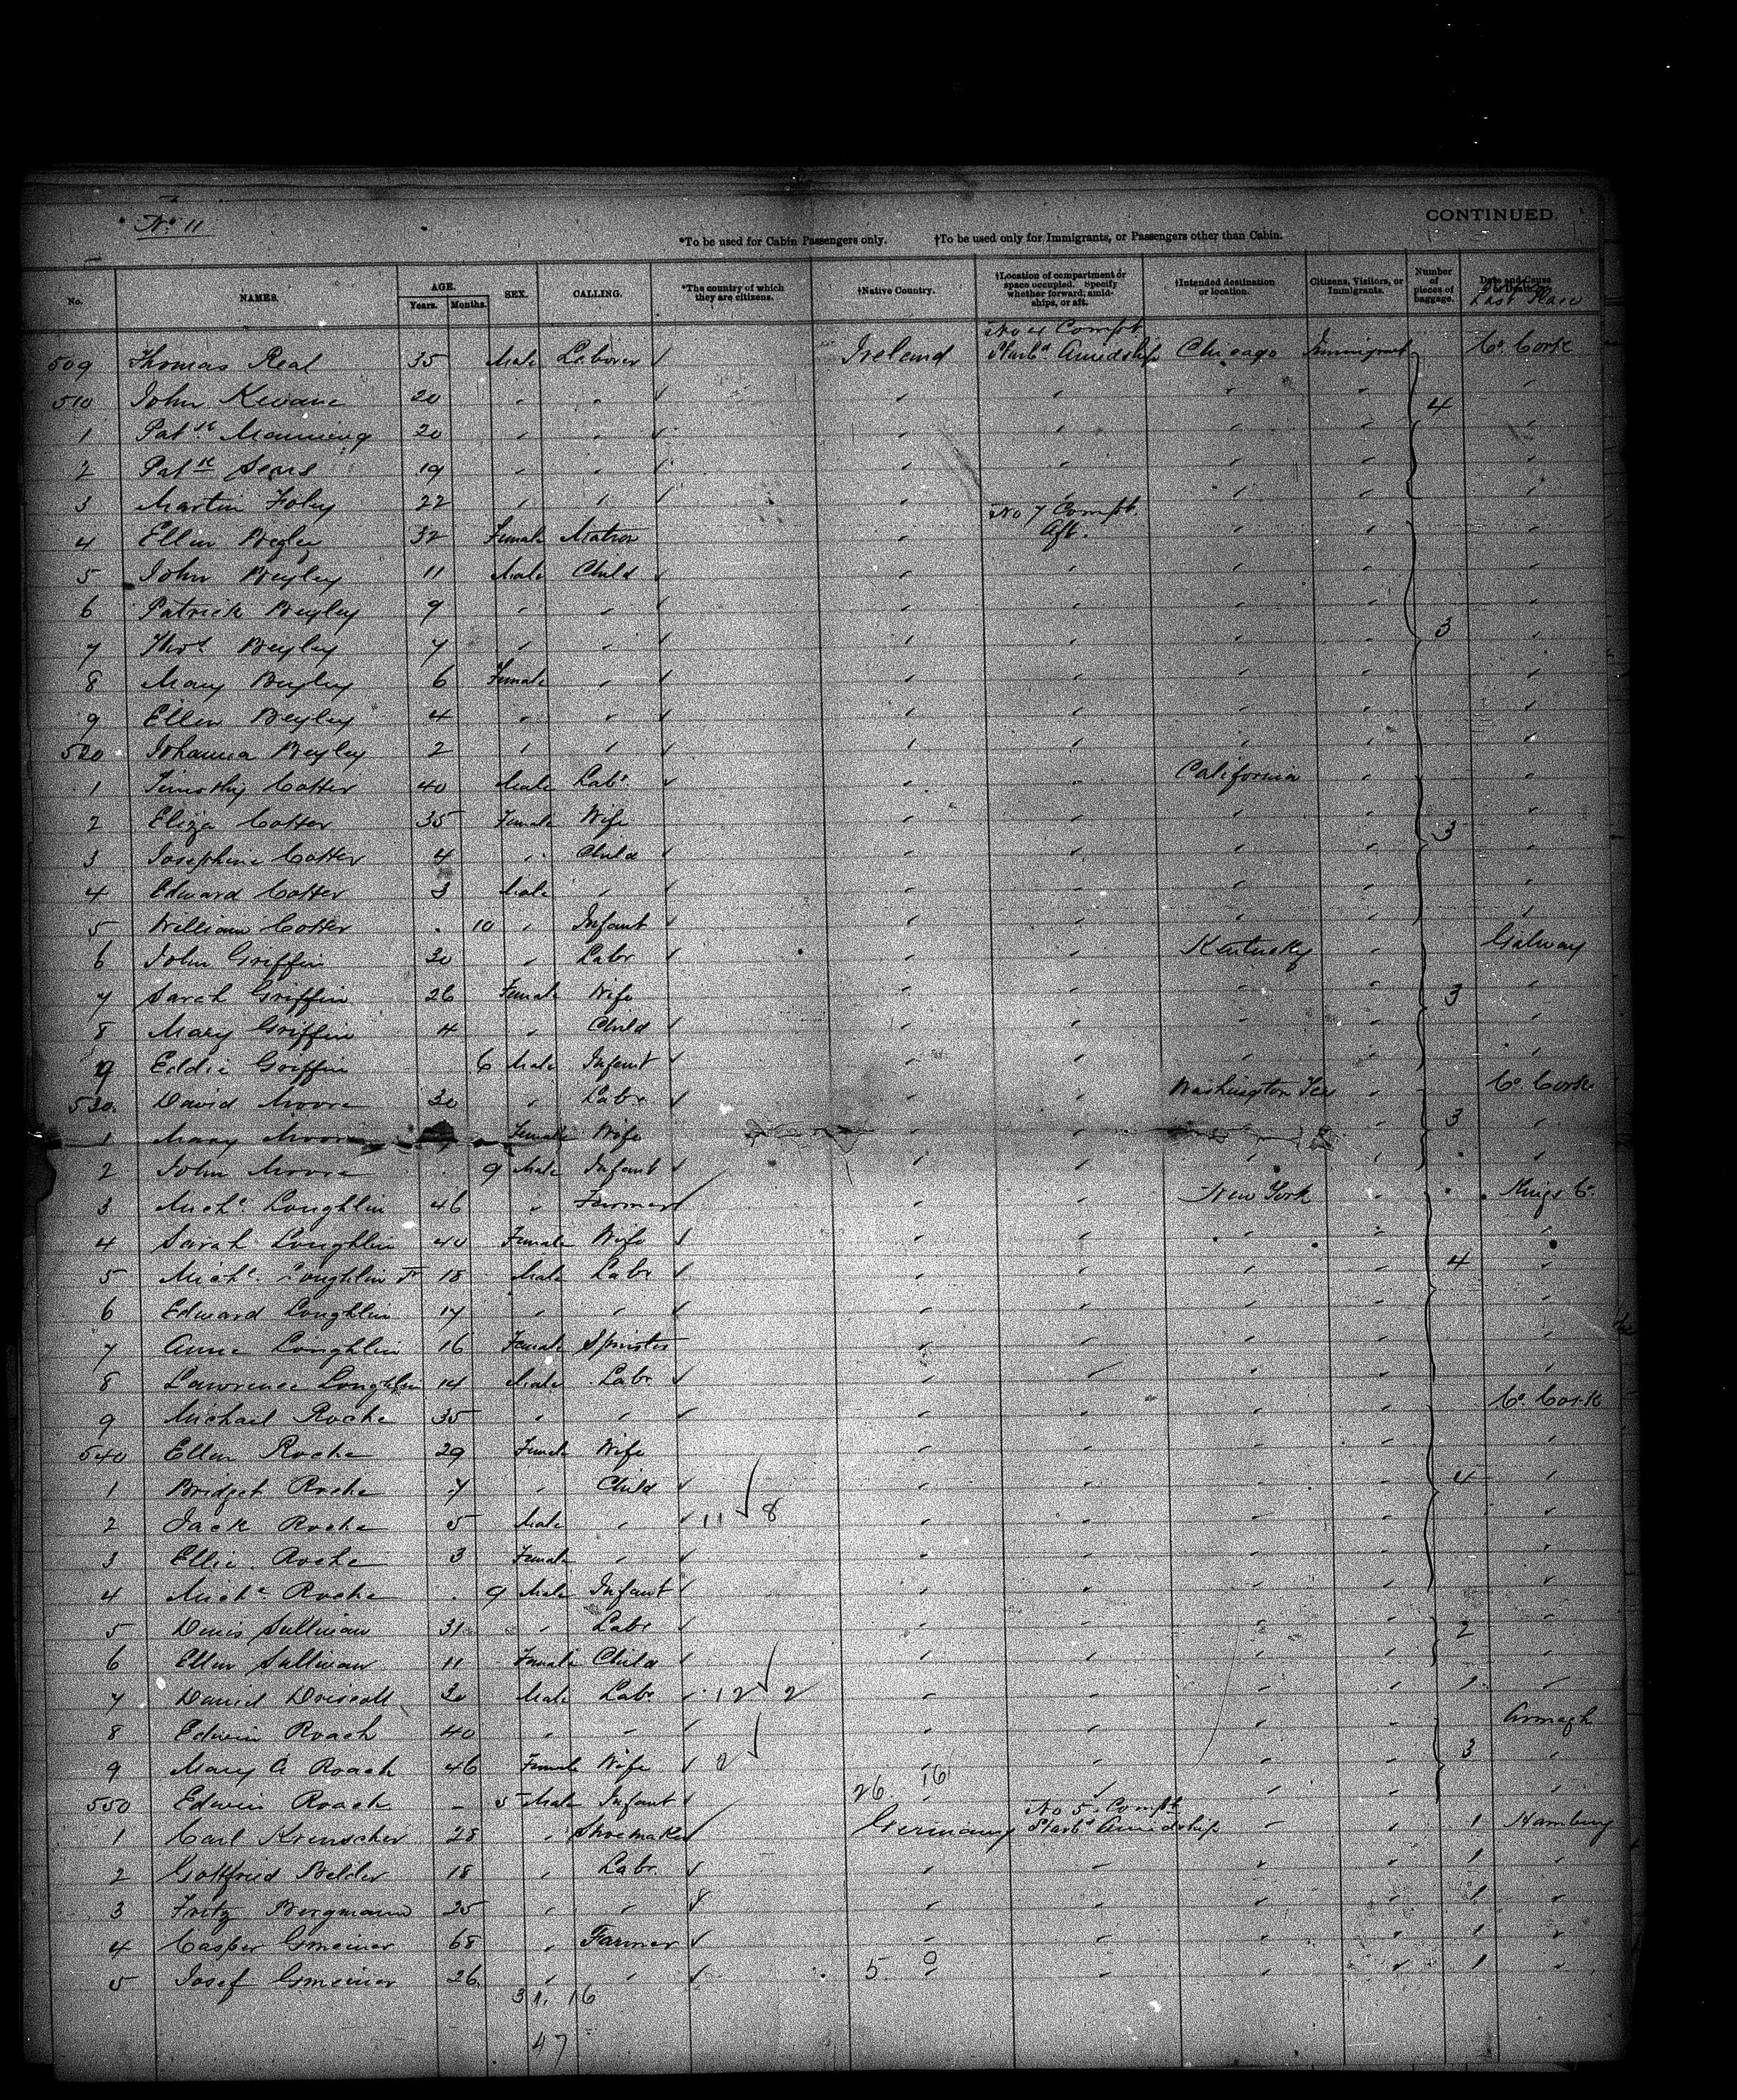 No. 11
CONTINUED.
*To be used for Cabin Passengers only. †To be used only for Immigrants, or Passengers other than Cabin.
No. NAMES. AGE. Years. Months. SEX. CALLING. *The country of which they are citizens. †Native Country. †Location of compartment or space occupied. Specify whether forward, amidships, or aft. †Intended destination or location. Citizens, Visitors, or Immigrants. Number of pieces of baggage. Date and Cause of Death. Last Place
509 Thomas Real 35 Male Laborer Ireland No 4 Compt Starbd Amidships Chicago Immigrant Co. Cork
510 John Kevane 20 " " " " " " 4 "
1 Patk Manning 20 " " " " " " "
2 Patk Sears 19 " " " " " " "
3 Martin Foley 22 " " " " " " "
4 Ellen Begley 32 Female Matron " No 7 Compt. Aft. " " "
5 John Begley 11 Male Child " " " " "
6 Patrick Begley 9 " " " " " " "
7 Thos Begley 7 " " " " " " 3 "
8 Mary Begley 6 Female " " " " " "
9 Ellen Begley 4 " " " " " " "
520 Johanna Begley 2 " " " " " " "
1 Timothy Cotter 40 Male Labr. " " California " "
2 Eliza Cotter 35 Female Wife " " " " 3 "
3 Josephine Cotter 4 " Child " " " " "
4 Edward Cotter 3 Male " " " " " "
5 William Cotter 10 " Infant " " " " "
6 John Griffin 30 " Labr " " Kentucky " Galway
7 Sarah Griffin 26 Female Wife " " " " 3 "
8 Mary Griffin 4 " Child " " " " "
9 Eddie Griffin 6 Male Infant " " " " "
530 David Moore 30 " Labr " " Washington Ter " Co. Cork
1 Mary Moore Female Wife " " " 3 "
2 John Moore 9 Male Infant " " " " "
3 Michl Loughlin 46 " Farmer " " New York " Kings Co.
4 Sarah Loughlin 40 Female Wife " " " " "
5 Michl. Loughlin Jr 18 Male Labr " " " " 4 "
6 Edward Loughlin 17 " " " " " " "
7 Anne Loughlin 16 Female Spinster " " " " "
8 Lawrence Loughlin 14 Male Labr " " " " "
9 Michael Roche 35 " " " " " " Co. Cork
540 Ellen Roche 29 Female Wife " " " " "
1 Bridget Roche 7 " Child " " " " 4 "
2 Jack Roche 5 Male " 11 8 " " " " "
3 Ellie Roche 3 Female " " " " " "
4 Michl Roche 9 Male Infant " " " " "
5 Denis Sullivan 31 " Labr " " " " 2 "
6 Ellen Sullivan 11 Female Child " " " " "
7 Daniel Driscoll 30 Male Labr 12 2 " " " " 1 "
8 Edwin Roach 40 " " " " " " Armagh
9 Mary A Roach 46 Female Wife 2 " " " " 3 "
550 Edwin Roach 5 Male Infant 26 16 " " " " "
1 Carl Krenscher 28 " Shoemaker Germany No 5. Compt Starbd Amidships " " 1 Hamburg
2 Gottfried Belder 18 " Labr. " " " " 1 "
3 Fritz Bergmann 25 " " " " " " 1 "
4 Casper Gmeiner 68 " Farmer " " " " 1 "
5 Josef Gmeiner 26 " " 5 0 " " " " 1 "
31. 16
47